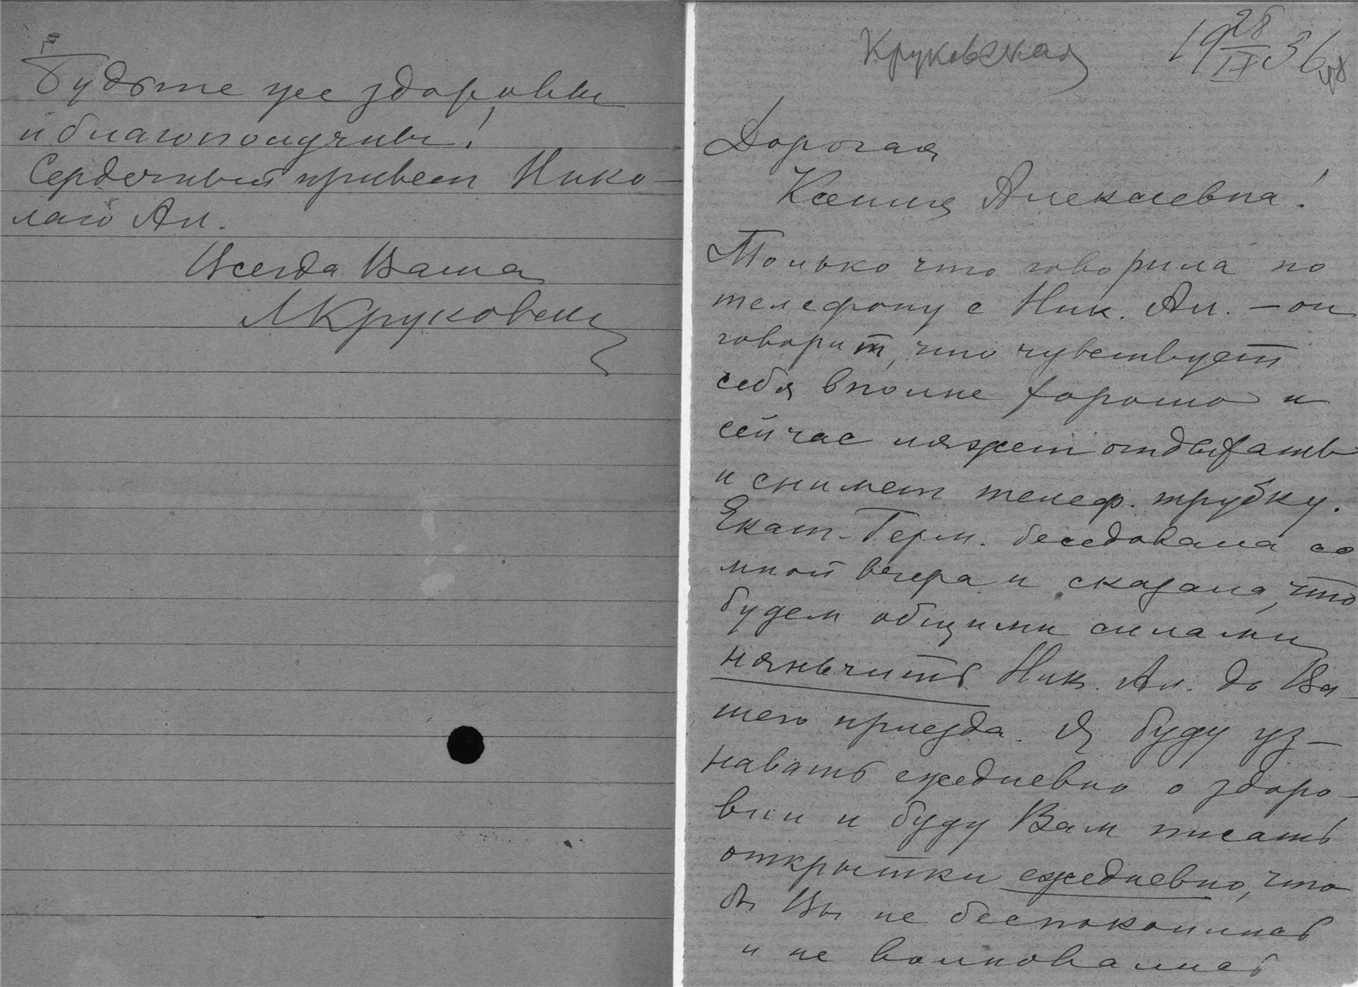 Будьте же здоровы
и благополучны!
Сердечный привет Нико-
лаю Ал.
Всегда Ваша
ЛКруковск
Круковская
19 28/IX 36
Дорогая
Ксения Алексеевна!
Только что говорила по
телефону с Ник. Ал. – он
говорит, что чувствует
себя вполне хорошо и
сейчас ляжет отдыхать
и снимет телеф. трубку.
Екат. Герм. беседовала со
мной вчера и сказала, что
будем общими силами
няньчить Ник. Ал. до Ва-
шего приезда. Я буду уз-
навать ежедневно о здоро-
вьи и буду Вам писать
открытки ежедневно, что
бы Вы не беспокоились
и не волновались